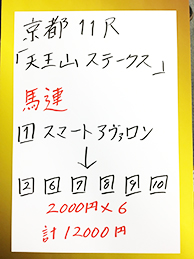 京都11R
「天王山ステークス」
馬連
1 スマートアヴァロン
↓
2 6 7 8 9 10
2000円×6
計12000円